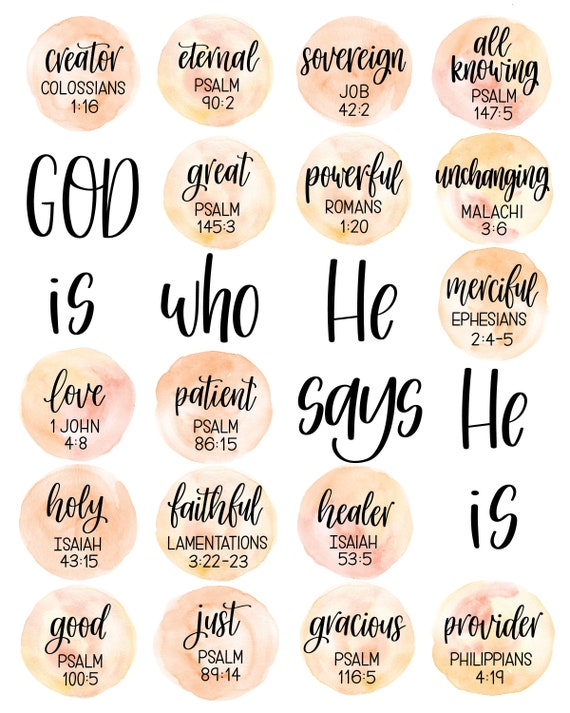 creator
COLOSSIANS
1:16
eternal
PSALM
90:2
sovereign
JOB
42:2
all
knowing
PSALM
147:5
GOD
great
PSALM
145:3
powerful
ROMANS
1:20
unchanging
MALACHI
3:6
is
who
He
merciful
EPHESIANS
2:4-5
love
1 JOHN
4:8
patient
PSALM
86:15
says
He
holy
ISAIAH
43:15
faithful
LAMENTATIONS
3:22-23
healer
ISAIAH
53:5
is
good
PSALM
100:5
just
PSALM
89:14
gracious
PSALM
116:5
provider
PHILIPPIANS
4:19